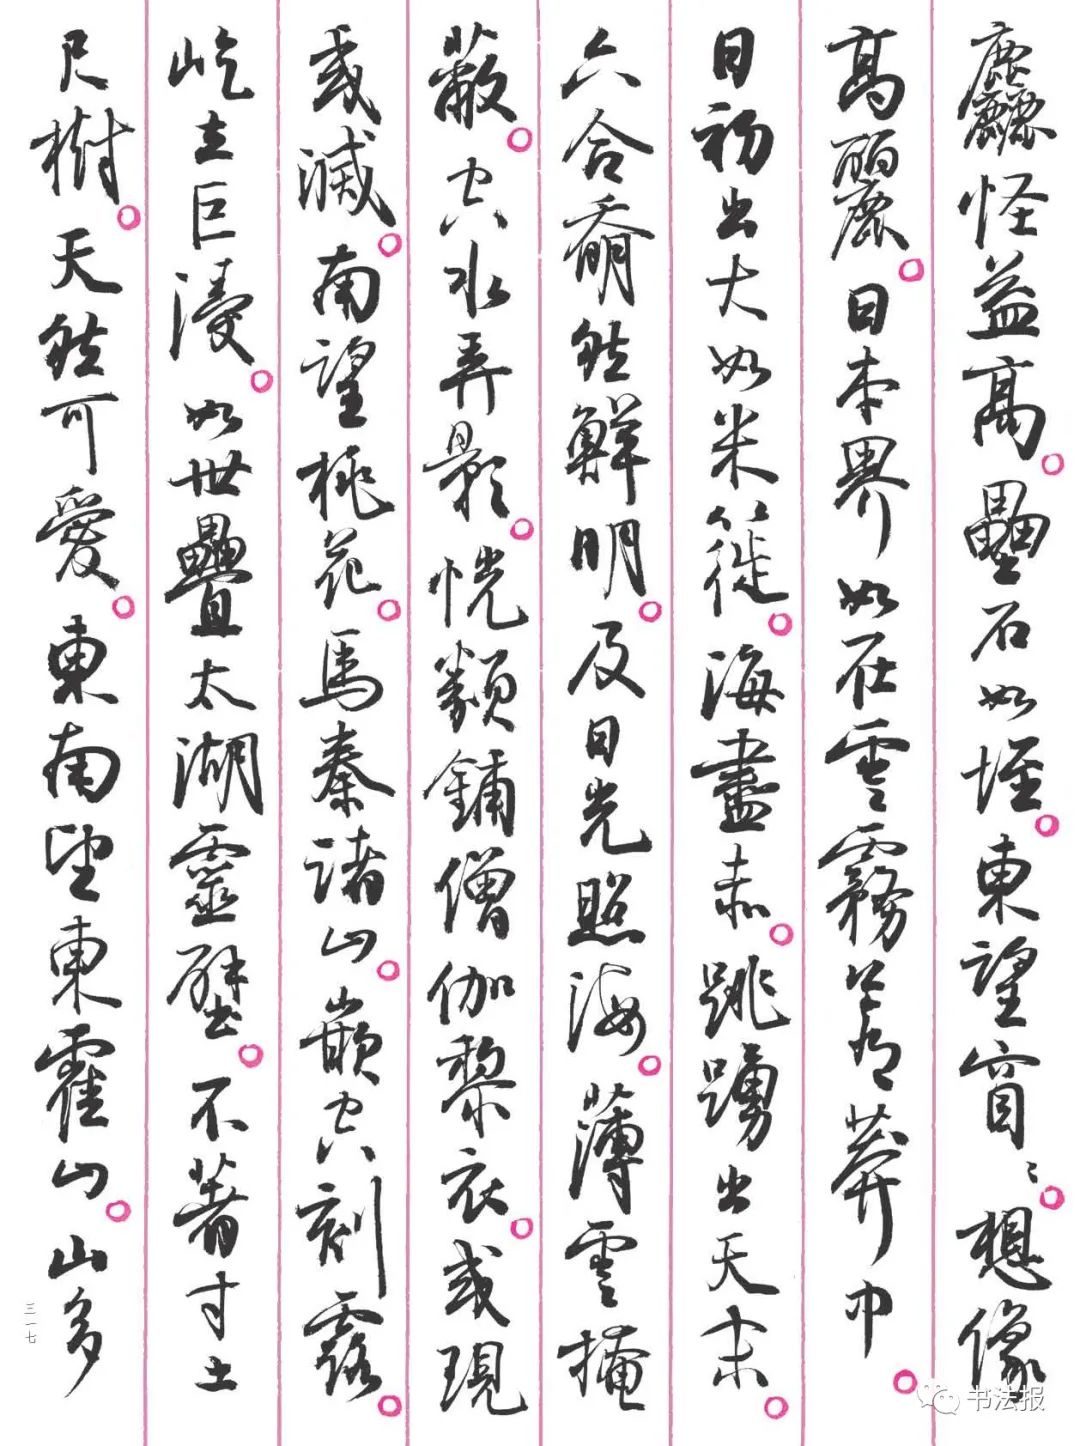 麤怪益高。壘石如垤。東望窅〻。想像
高麗。日本界如在雲霧蒼莽中。
日初出大如米簁。海盡赤。跳踴出天末。
六合奣然鮮明。及日光照海。薄雲掩
蔽。空水弄影。恍類鋪僧伽黎衣。或現
或滅。南望桃花。馬秦諸山。嵌空刻露。
屹立巨浸。如世疊太湖靈壁。不著寸土
尺樹。天然可愛。東南望東霍山。山多
三一七
书法报